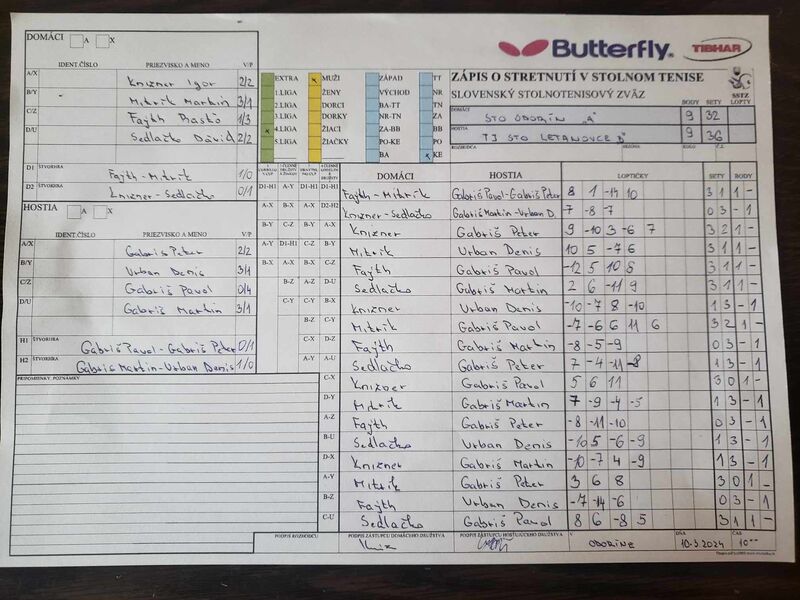 Butterfly
TIBHAR
DOMÁCI A X
IDENT.ČÍSLO PRIEZVISKO A MENO V/P
A/X Knizner Igor 2/2
B/Y Mitrík Martin 3/1
C/Z Fajth Rastó 1/3
D/U Sedlačko Dávid 2/2
D1 ŠTVORHRA Fajth - Mitrík 1/0
D2 ŠTVORHRA Knizner-Sedlačko 0/1
HOSTIA A X
IDENT.ČÍSLO PRIEZVISKO A MENO V/P
A/X Gabriš Peter 2/2
B/Y Urban Denis 3/1
C/Z Gabriš Pavol 0/4
D/U Gabriš Martin 3/1
H1 ŠTVORHRA Gabriš Pavol - Gabriš Peter 0/1
H2 ŠTVORHRA Gabriš Martin-Urban Denis 1/0
PRIPOMIENKY, POZNÁMKY
EXTRA x MUŽI ZÁPAD TT
1.LIGA ŽENY VÝCHOD NR
2.LIGA DORCI BA-TT TN
3.LIGA DORKY NR-TN ZA
x 4.LIGA ŽIACI ZA-BB BB
5.LIGA ŽIAČKY PO-KE PO
BA x KE
ZÁPIS O STRETNUTÍ V STOLNOM TENISE
SLOVENSKÝ STOLNOTENISOVÝ ZVÄZ
SSTZ
BODY SETY LOPTY
DOMÁCI STO OBORÍN "A" 9 32
HOSTIA TJ STO LETANOVCE 9 36
ROZHODCA SEZÓNA KOLO Č.Z.
DOMÁCI HOSTIA LOPTIČKY SETY BODY
D1-H1 A-Y D1-H1 D1-H1 Fajth - Mitrík Gabriš Pavol-Gabriš Peter 8 1 -14 10 3 1 1 -
A-X B-X A-X D2-H2 Knizner - Sedlačko Gabriš Martin-Urban D. -7 -8 -7 0 3 - 1
B-Y C-Z B-Y A-X Knizner Gabriš Peter 9 -10 3 -6 7 3 2 1 -
A-Y D1-H1 C-Z B-Y Mitrík Urban Denis 10 5 -7 6 3 1 1 -
B-X A-X B-X C-Z Fajth Gabriš Pavol -12 5 10 8 3 1 1 -
B-Z A-Z D-U Sedlačko Gabriš Martin 2 6 -11 9 3 1 1 -
C-Y C-Y A-Y Knizner Urban Denis -10 -7 8 -10 1 3 - 1
B-Z B-Z Mitrík Gabriš Pavol -7 -6 6 11 6 3 2 1 -
C-X C-U Fajth Gabriš Martin -8 -5 -9 0 3 - 1
A-Y D-X Sedlačko Gabriš Peter 7 -4 -11 -8 1 3 - 1
A-Z Knizner Gabriš Pavol 5 6 11 3 0 1 -
B-U Mitrík Gabriš Martin 7 -9 -4 -5 1 3 - 1
C-X Fajth Gabriš Peter -8 -11 -10 0 3 - 1
D-Y Sedlačko Urban Denis -10 5 -6 -9 1 3 - 1
A-U Knizner Gabriš Martin -10 -7 4 -9 1 3 - 1
B-X Mitrík Gabriš Peter 3 6 8 3 0 1 -
C-Y Fajth Urban Denis -7 -14 -6 0 3 - 1
D-Z Sedlačko Gabriš Pavol 8 6 -8 5 3 1 1 -
PODPIS ROZHODCU PODPIS ZÁSTUPCU DOMÁCEHO DRUŽSTVA PODPIS ZÁSTUPCU HOSŤUJÚCEHO DRUŽSTVA V OBORÍNE DŇA 10.3.2024 ČAS 10⁰⁰